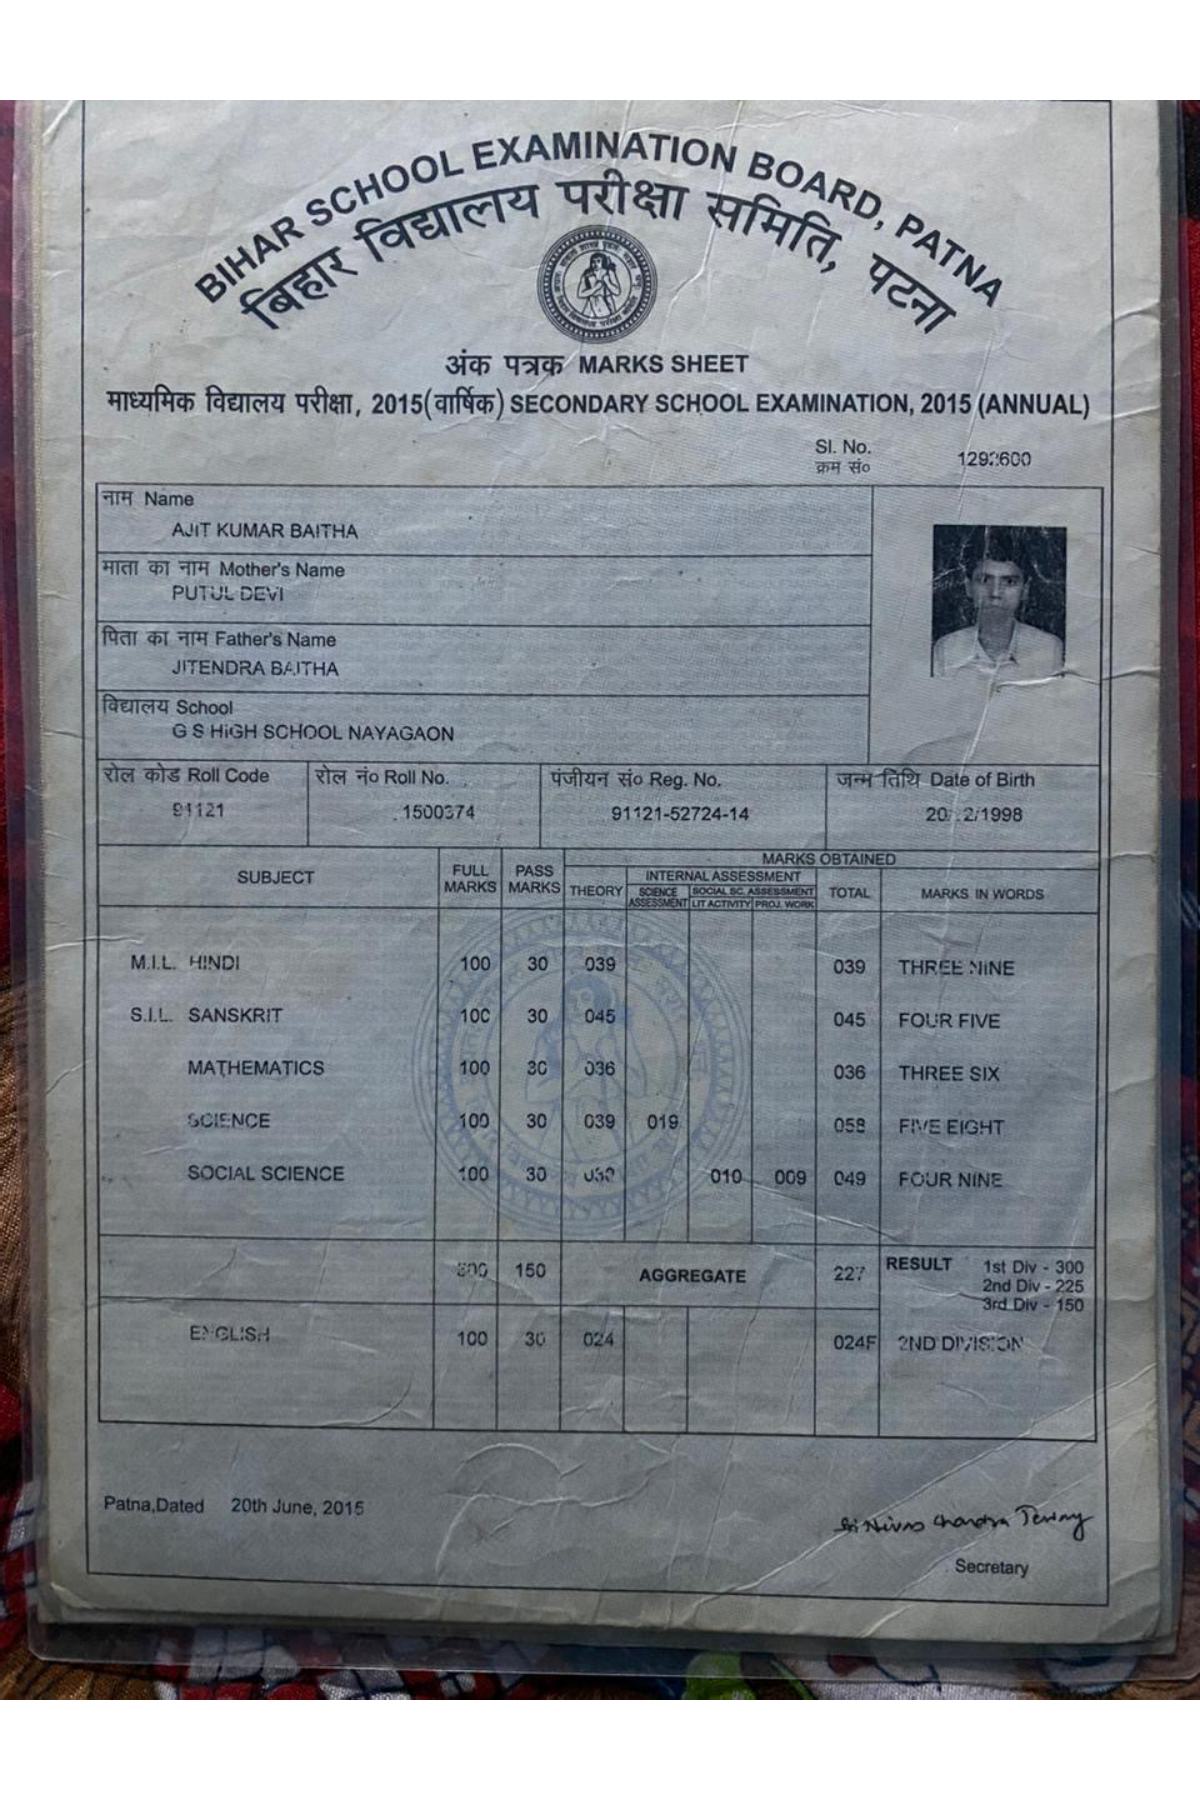 BIHAR SCHOOL EXAMINATION BOARD, PATNA
बिहार विद्यालय परीक्षा समिति, पटना
अंक पत्रक MARKS SHEET
माध्यमिक विद्यालय परीक्षा, 2015(वार्षिक) SECONDARY SCHOOL EXAMINATION, 2015 (ANNUAL)
Sl. No.
क्रम सं०
नाम Name
AJIT KUMAR BAITHA
माता का नाम Mother's Name
PUTUL DEVI
पिता का नाम Father's Name
JITENDRA BAITHA
विद्यालय School
G S HIGH SCHOOL NAYAGAON
रोल कोड Roll Code रोल नं० Roll No. पंजीयन सं० Reg. No. जन्म तिथि Date of Birth
91121 1500374 91121-52724-14
MARKS OBTAINED
SUBJECT FULL MARKS PASS MARKS THEORY INTERNAL ASSESSMENT TOTAL MARKS IN WORDS
SCIENCE ASSESSMENT SOCIAL SC. ASSESSMENT
LIT ACTIVITY PROJ. WORK
M.I.L. HINDI 100 30 039 039 THREE NINE
S.I.L. SANSKRIT 100 30 045 045 FOUR FIVE
MATHEMATICS 100 30 036 036 THREE SIX
SCIENCE 100 30 039 019 058 FIVE EIGHT
SOCIAL SCIENCE 100 30 030 010 009 049 FOUR NINE
500 150 AGGREGATE 227 RESULT 1st Div - 300
2nd Div - 225
3rd Div - 150
ENGLISH 100 30 024 024F 2ND DIVISION
Patna,Dated 20th June, 2015
Secretary